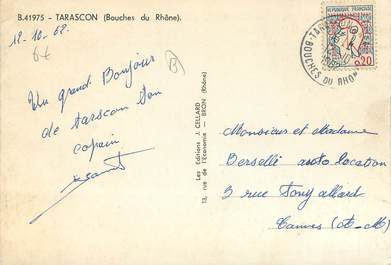 B.41975 - TARASCON (Bouches du Rhône).
12-10-62.
Un grand Bonjour
de tarscon ton
copain
Les Editions J. CELLARD
13, rue de l'Economie - BRON (Rhône)
BOUCHES DU RHONE
0,20
Monsieur et Madame
Berselli auto location
3 rue Tony allard
Cannes (A-M)